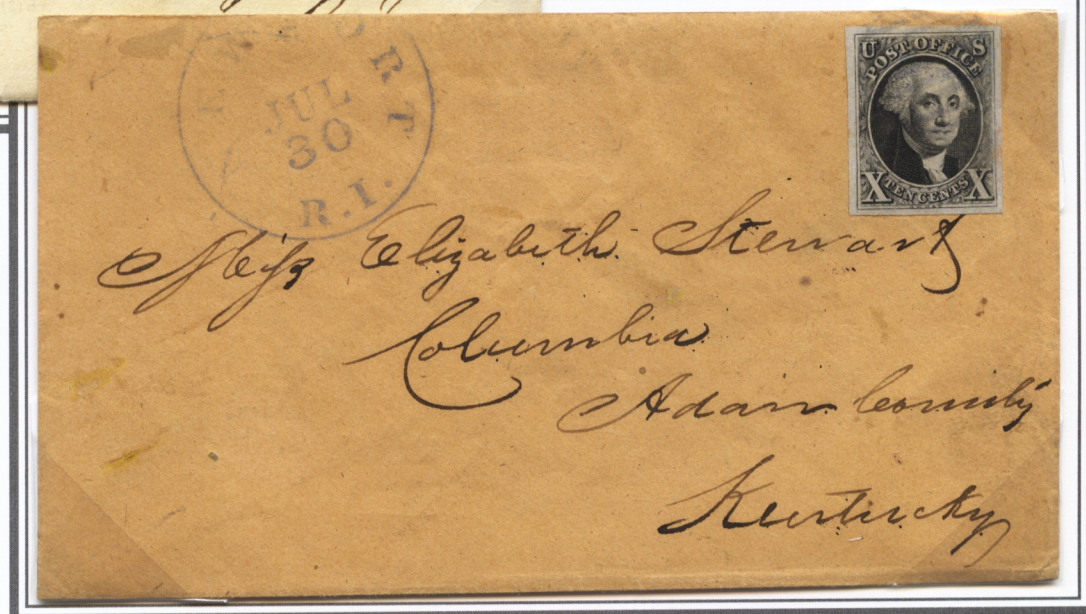 NEWPORT
JUL
30
R.I.
U S
POST OFFICE
X TEN CENTS X
Miss Elizabeth Stewart
Columbia
Adair County
Kentucky